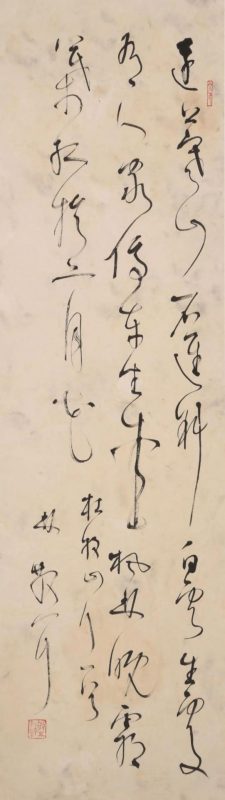 遠上寒山石逕斜白雲生處
有人家停車坐愛楓林晚霜
葉紅於二月花
杜牧山行
林散耳